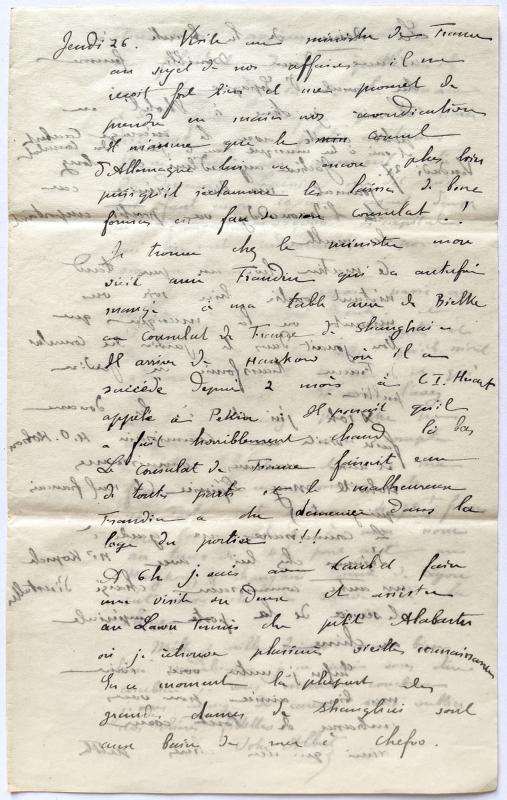 Jeudi 26. Visite au ministre de France
au sujet de nos affaires il me
reçoit fort bien et me promet de
prendre en mains nos revendications
Il m'annonce que le consul
d'Allemagne lui va encore plus loin
puisqu'il réclame la laisse de boue
formée en face de son consulat . !
Je trouve chez le ministre mon
vieil ami Frandin qui a autrefois
mangé à ma table avec de Bielke
au Consulat de France de Shanghai
Il arrive de Hankow où il a
succédé depuis 2 mois à C. I. Huart
appelé à Pékin. Il paraît qu'il
a fait horriblement chaud là bas
Le Consulat de France faisait eau
de toutes parts et le malheureux
Frandin a du demeurer dans la
loge du portier !!!
A 6h je vais au faire
une visite au et assister
au Lawn Tennis du petit Alabaster
où je retrouve plusieurs vieilles connaissances
En ce moment la plupart des
grandes dames de Shanghai sont
aux bains de mer à Chefoo.